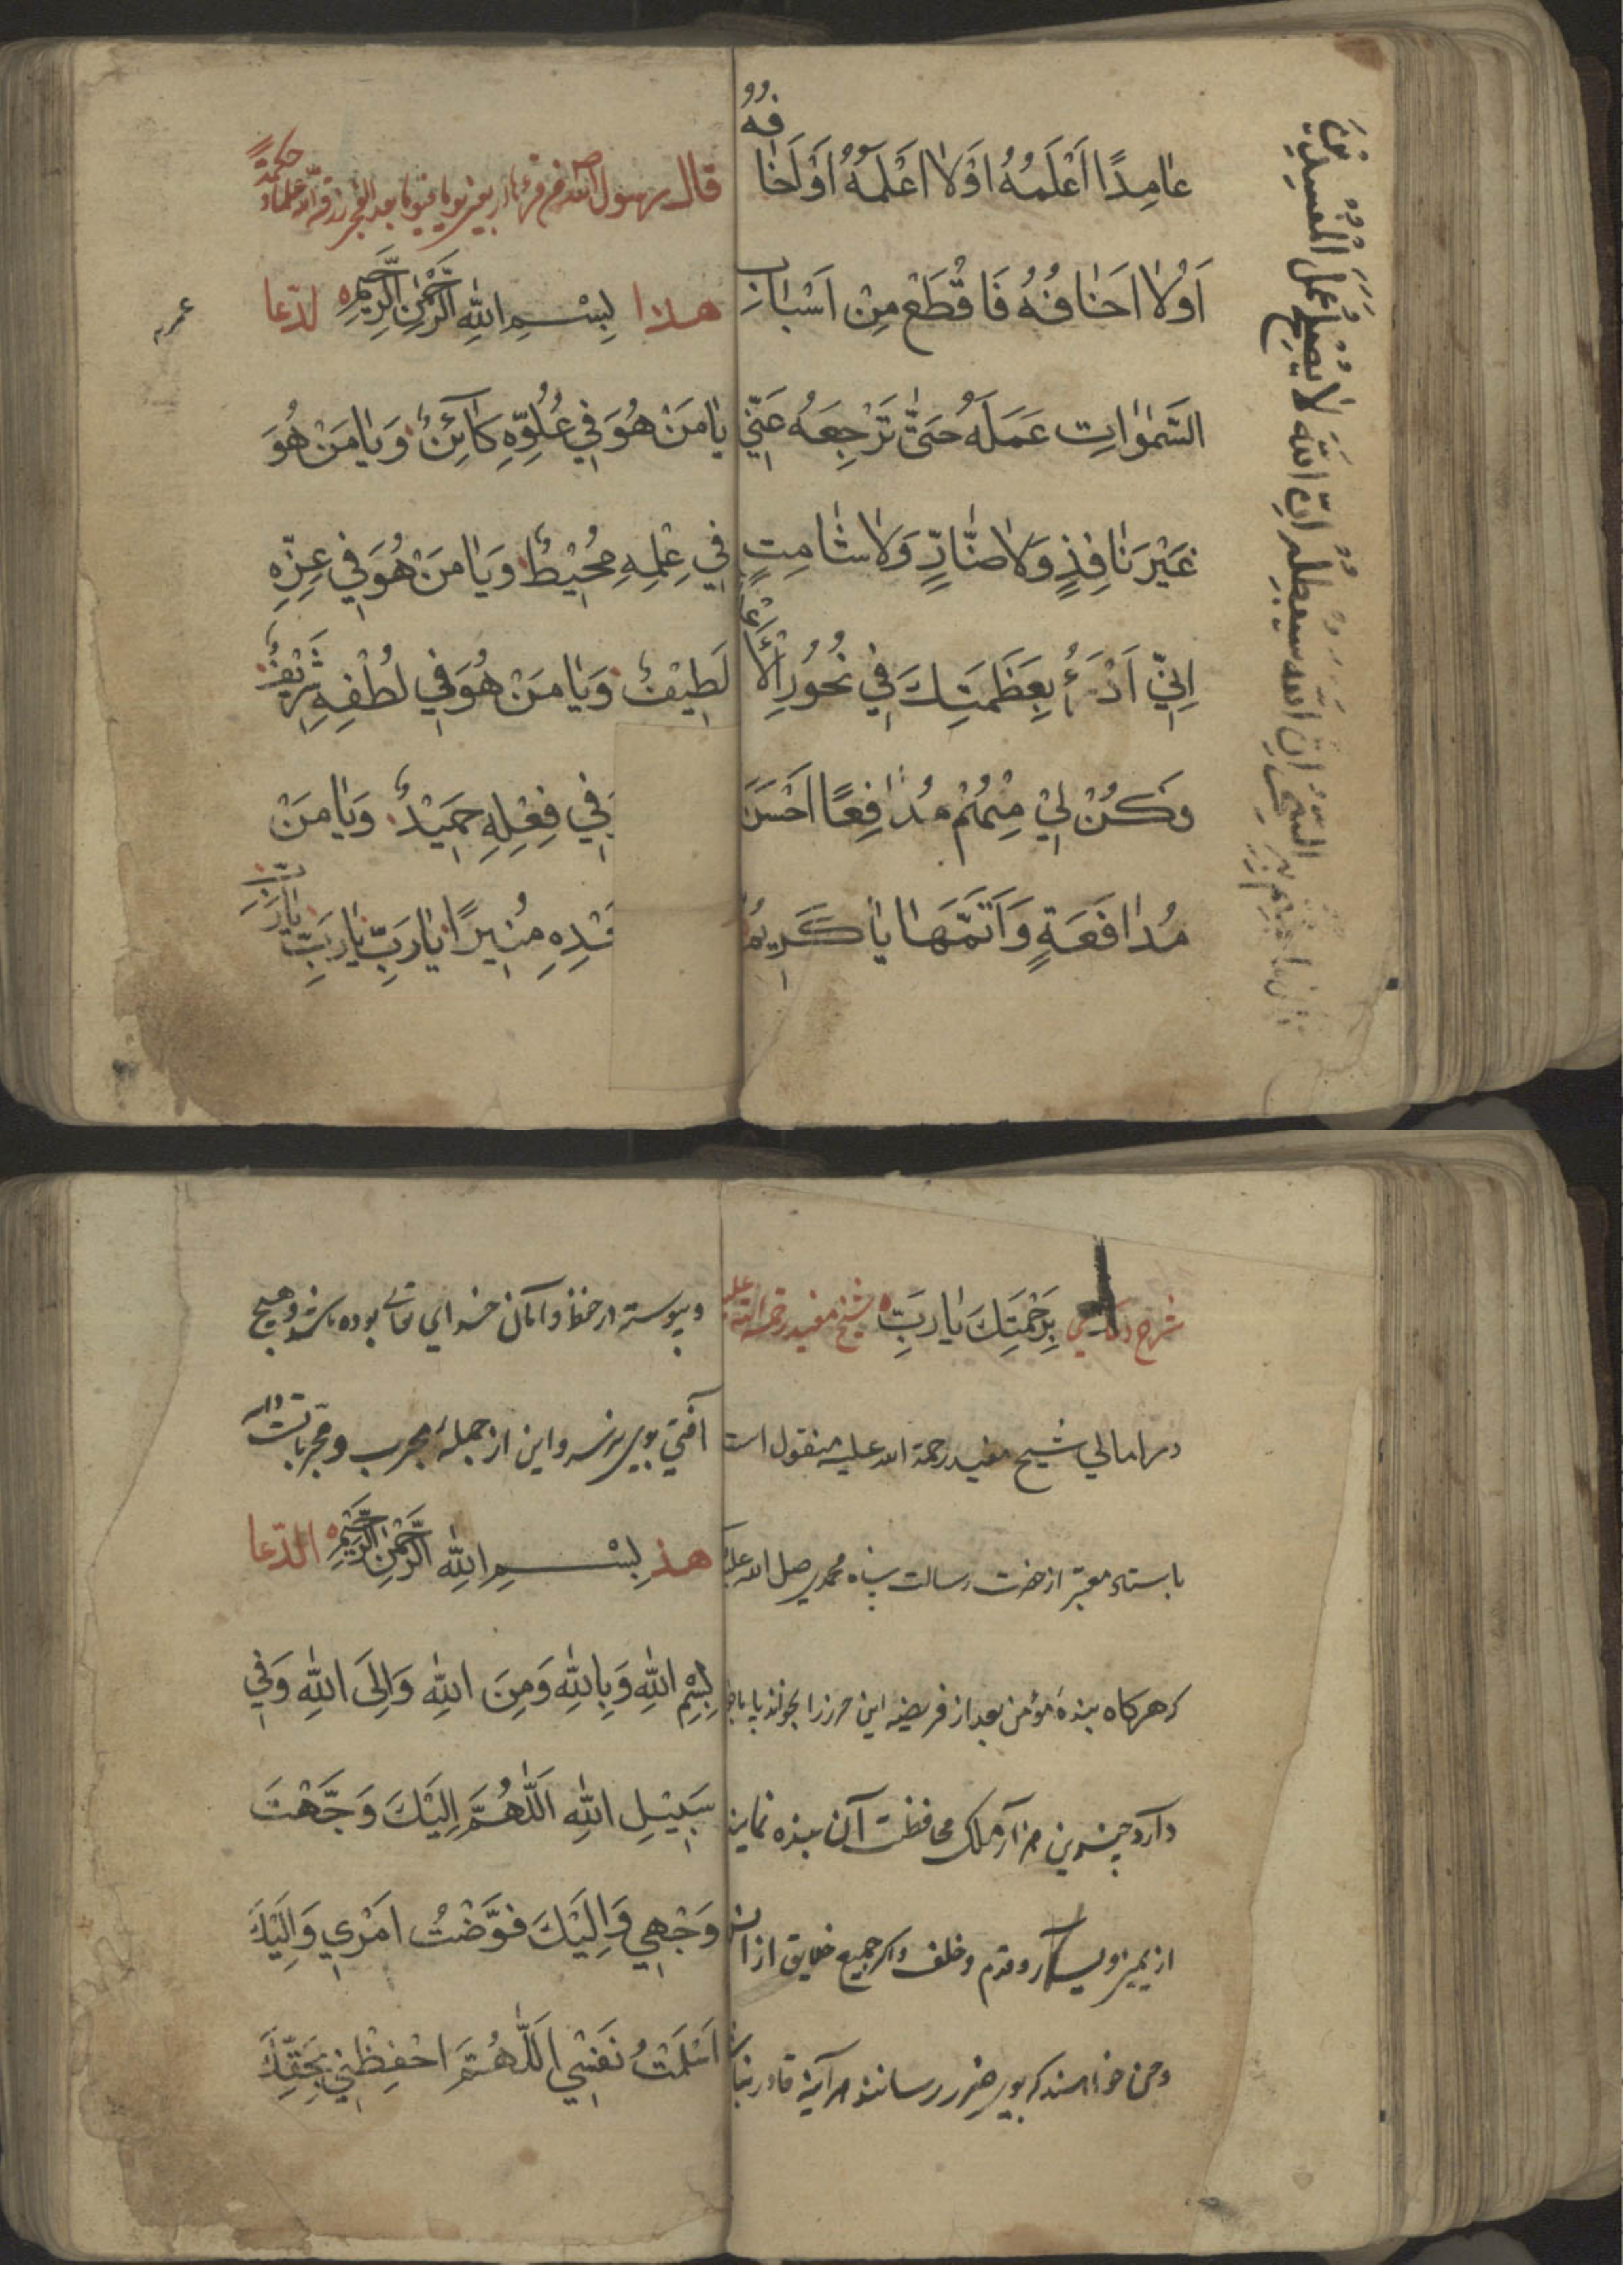 عٰامِدًا اَعْلَمُهُ اَوْلاٰ اَعْلَمُهُ اَوْ اَخٰافُهُ
اَوْلاٰ اَخٰافُهُ فَاقْطَعْ مِنْ اَسْبٰابِ
السَّمٰوٰاتِ عَمَلَهُ حَتّٰى تَرْجِعَهُ عَنِّي
غَيْرَ نٰافِذٍ وَلاٰ ضٰارٍّ وَلاٰ شٰامِتٍ
اِنِّي اَدْرَءُ بِعَظَمَتِكَ فِي نُحُورِ الْاَعْدٰاءِ
وَكُنْ لِيْ مِنْهُمْ مُدٰافِعًا اَحْسَنَ
مُدٰافَعَةٍ وَاَتَمَّهٰا يٰا كَرِيمُ
سيبطله ان الله لا يصلح عمل المفسدين
قال رسول الله
هذا بِسْمِ اللهِ الرَّحْمٰنِ الرَّحِيمِ لدّعا
يٰا مَنْ هُوَ فِي عُلُوِّهِ كٰائِنٌ وَيٰا مَنْ هُوَ
فِي عِلْمِهِ مُحِيْطٌ وَيٰا مَنْ هُوَ فِي عِزِّهِ
لَطِيْفٌ وَيٰا مَنْ هُوَ فِي لُطْفِهِ شَرِيْفٌ
فِي فِعْلِهِ حَمِيْدٌ وَيٰا مَنْ
مُنِيرًا يٰارَبِّ يٰارَبِّ يٰارَبِّ
بِرَحْمَتِكَ يٰارَبِّ شيخ مفيد رحمة الله عليه
در امالي شيخ مفيد رحمة الله عليه منقول است
باسناد معتبر از حضرت رسالت پناه محمد صلى الله عليه
كه هركاه بنده مؤمن بعد از فريضه اين حرز را بخواند
دارد چندين هزار ملك محافظت آن بنده نمايند
از يمين و يسار و قدم و خلف و اكر جميع خلايق از انس
و جن خواهند كه بوى ضرر رسانند هر آينه قادر نباشند
و پيوسته در حفظ و امان خداي تعالى بوده باشد و هيچ
آفتي بوى نرسد و اين از جمله مجرب و مجربات است
هذ بِسْمِ اللهِ الرَّحْمٰنِ الرَّحِيْمِ الدّعا
بِسْمِ اللهِ وَبِاللهِ وَمِنَ اللهِ وَاِلَى اللهِ وَفِي
سَبِيْلِ اللهِ اَللّٰهُمَّ اِلَيْكَ وَجَّهْتُ
وَجْهِي وَاِلَيْكَ فَوَّضْتُ اَمْرِي وَاِلَيْكَ
اَسْلَمْتُ نَفْسِي اَللّٰهُمَّ احْفِظْنِي بِحَقِّكَ